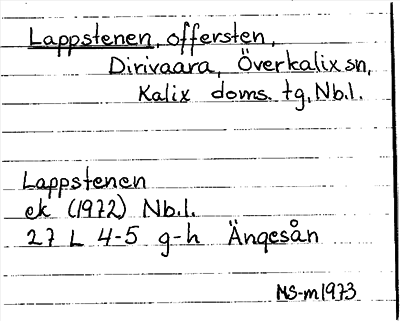 Lappstenen, offersten,
Dirivaara, Överkalix sn,
Kalix doms. tg, Nb.l.
Lappstenen
ek (1972) Nb.l.
27 L 4-5 g-h Ängesån
MS-m1973